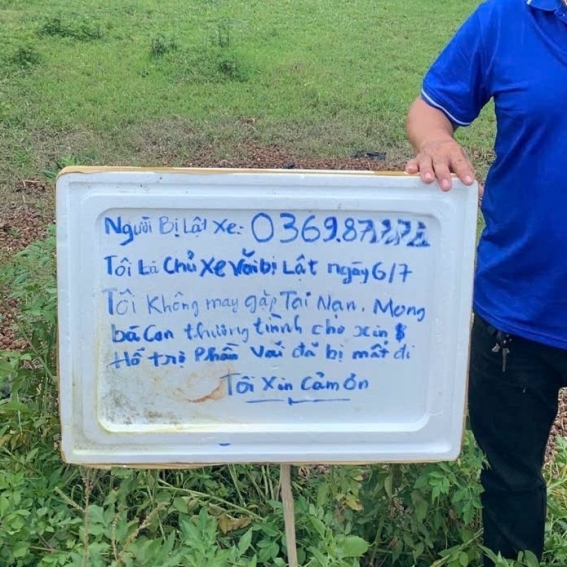 Người Bị Lật Xe: 0369.87
Tôi Là Chủ Xe Vải bị Lật ngày 6/7
Tôi Không may gặp Tai Nạn. Mong
bà Con thương tình cho xin $
Hổ trợ Phần Vải đã bị mất đi
Tôi Xin Cảm Ơn